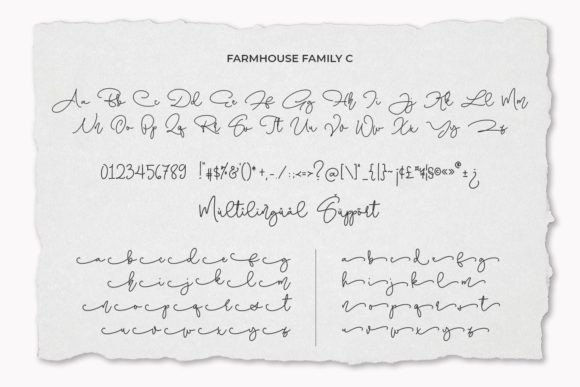 FARMHOUSE FAMILY C
Aa Bb Cc Dd Ee Ff Gg Hh Ii Jj Kk Ll Mm
Nn Oo Pp Qq Rr Ss Tt Uu Vv Ww Xx Yy Zz
0123456789 !"#$%&'()*+,-./:;<=>?@[\]^_{|}~¡¢£¤¥¦§©«»®±¿
Mültilingüäl Süppört
a b c d e f g
h i j k l m
n o p q r s t
u v w x y z
a b c d e f g
h i j k l m
n o p q r s t
u v w x y z